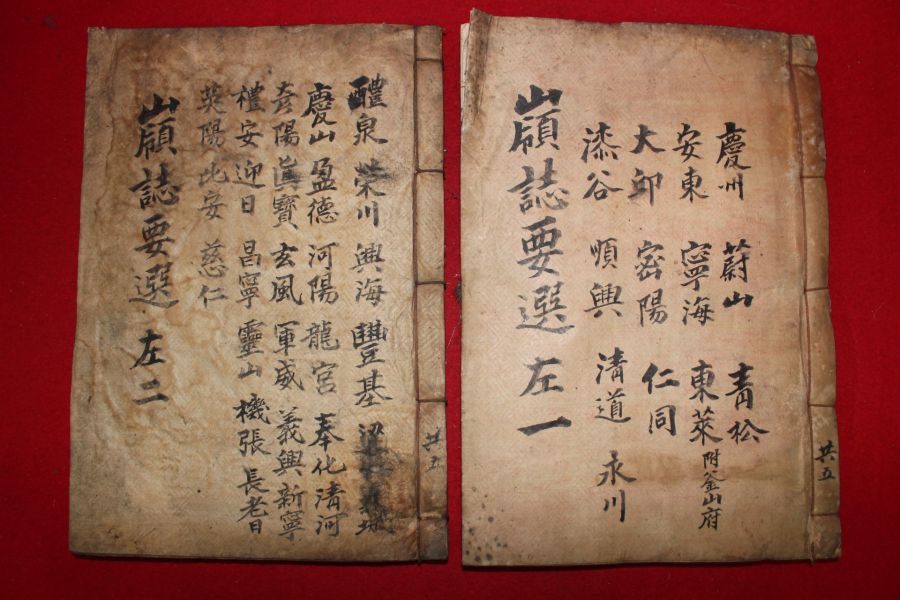 共五
慶州 蔚山 青松
安東 寧海 東萊 附釜山府
大邱 密陽 仁同
漆谷 順興 清道 永川
嶺誌要選 左一
共五
醴泉 榮川 興海 豐基 梁
慶山 盈德 河陽 龍宮 奉化 清河
彦陽 眞寶 玄風 軍威 義興 新寧
禮安 迎日 昌寧 靈山 機張 長耆
英陽 比安 慈仁
嶺誌要選 左二